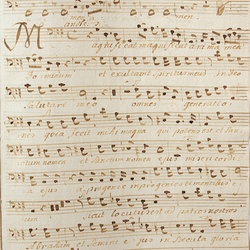 men men
Magnificat magnificat anima mea
Dominum et exultavit spiritus meus in Deo
Salutari meo omnes generatio
nes quia fecit mihi magna qui potens est et san
ctum nomen et sanctum nomen ejus misericordi
a ejus a progenie in progenies timentibus e
sicut locutus est ad patres nostros
Abraham et Semini ejus in Secula gloria